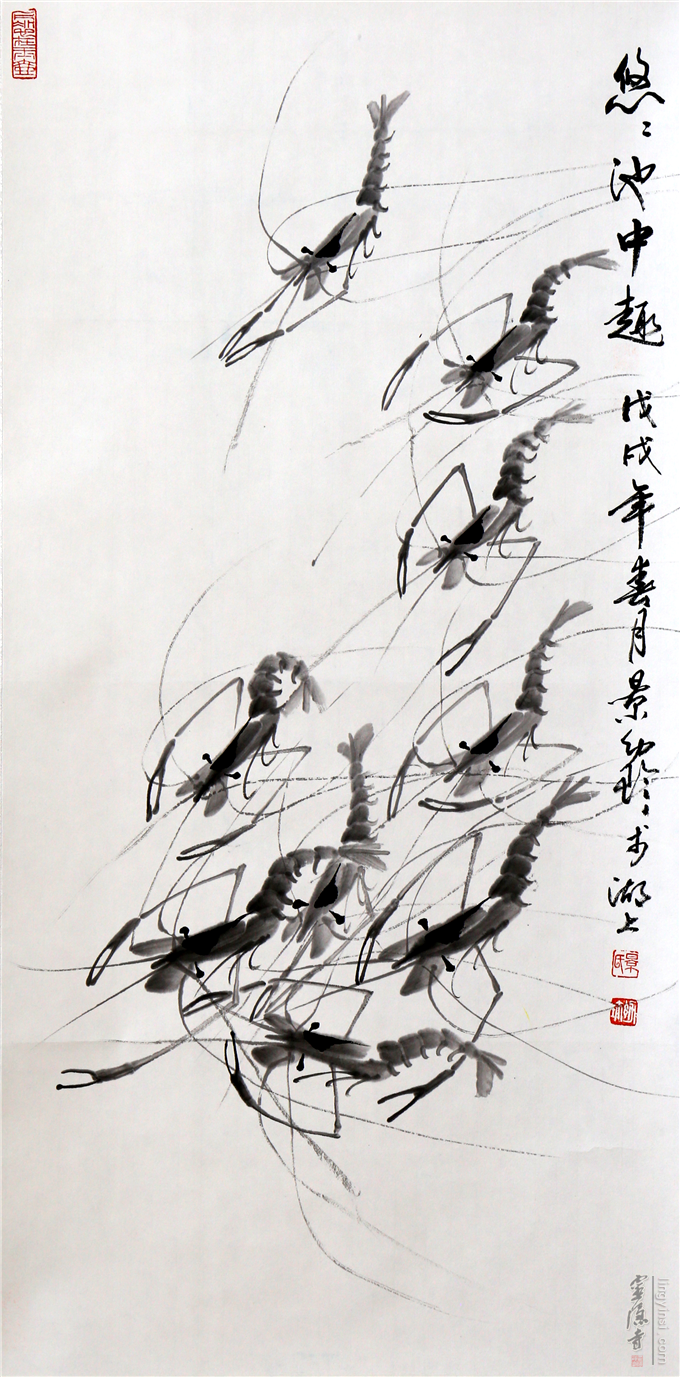 悠〻池中趣 戊戌年春月景幼於湖上
lingyinsi.com